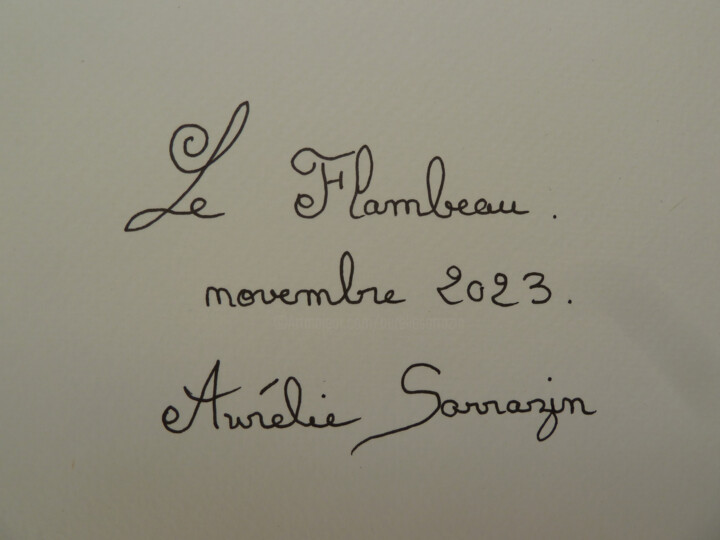 Le Flambeau.
novembre 2023.
Aurélie Sarrazin